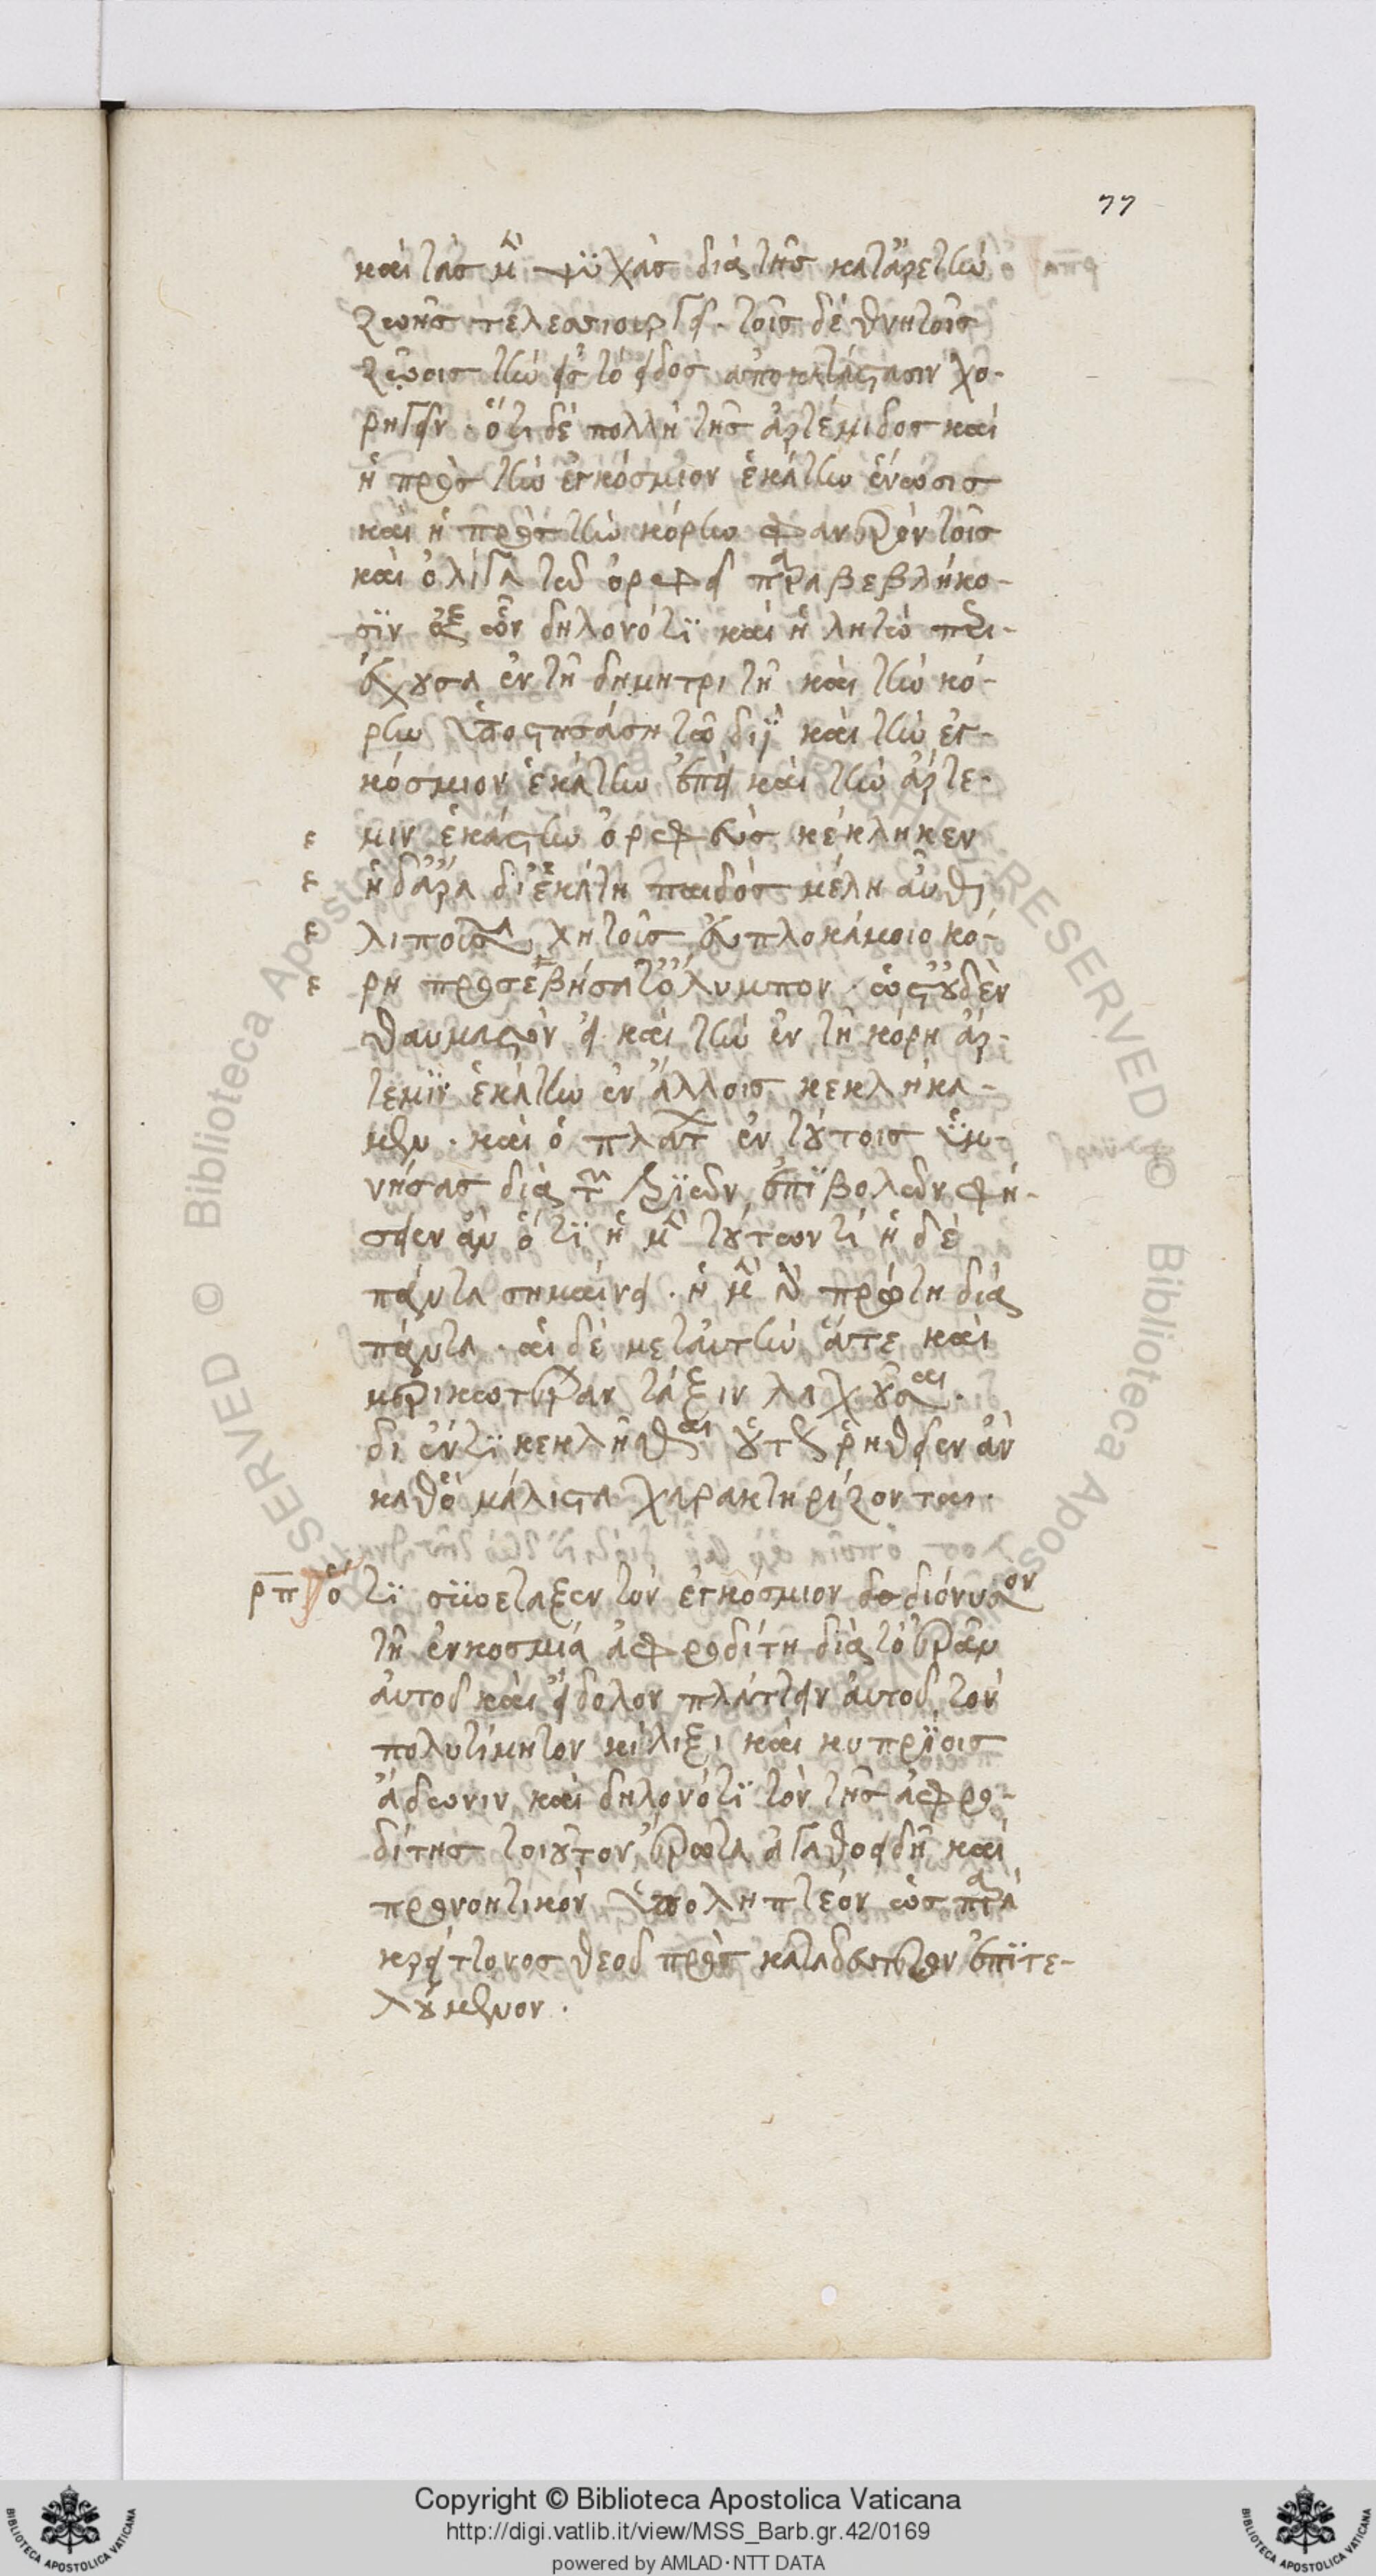 77
καὶ τὰς μὲν ψυχὰς διὰ τῆς κατ' ἀρετὴν
ζωῆς τελεσιουργεῖ. τοῖς δὲ θνητοῖς
ζώοις τὴν εἰς τὸ εἶδος ἀποκατάστασιν χο-
ρηγεῖν. ὅτι δὲ πολλὴ τῆς ἀρτέμιδος καὶ
ἡ πρὸς τὴν ἐγκόσμιον ἑκάτην ἕνωσις
καὶ ἡ πρὸς τὴν κόρην φανερὸν τοῖς
καὶ ὀλίγα τῶ ὀρφεῖ παραβεβληκό-
σϊν ἐξ ὧν δηλονότϊ καὶ ἡ λητὼ περι-
έχουσα ἐν τῆ δημητρι τῆ καὶ τὴν κό-
ρην ὑποστησάση τῶ διῒ καὶ τὴν ἐγ-
κόσμιον ἑκάτην ἐπεὶ καὶ τὴν ἄρτε-
μιν ἑκάστην ὀρφεὺς κέκληκεν
ἡ δ' ἄρα δι' ἑκάτη παιδὸς μέλη αὖθι
λιποῦσα λητοῖς εὐπλοκάμοιο κό-
ρη προσεβήσατ' ὄλυμπον. ὥστ' οὐδὲν
θαυμαστὸν εἰ καὶ τὴν ἐν τῆ κόρη ἄρ-
τεμϊν ἑκάτην ἐν ἄλλοις κεκλήκα-
μεν. καὶ ὁ πλάτων ἐν τούτοις ὑμ-
νήσας διὰ τῶν ἐπϊβολῶν φή-
σειεν ἂν ὅτϊ ἡ μὲν τούτων τί ἡ δὲ
πάντα σημαίνει. ἡ μὲν οὖν πρώτη διὰ
πάντα. αἱ δὲ μετ' αὐτὴν ἅτε καὶ
μερικωτέραν τάξιν λαχοῦσαι.
δι' ἕν τϊ κεκλῆσθαι οὕτως ῥηθεῖεν ἂν
καθὸ μάλιστα χαρακτηρίζονται.
ρπ ὅτϊ συνέταξεν τὸν ἐγκόσμιον διόνυσον
τῆ ἐνκοσμία ἀφροδίτη διὰ τὸ ἐρᾶν
αὐτοῦ καὶ εἴδολον πλάττειν αὐτοῦ τὸν
πολυτίμητον κίλιξι καὶ κυπρϊοις
ἄδωνιν καὶ δηλονότϊ τὸν τῆς ἀφρο-
δίτης τοιοῦτον ἔρωτα ἀγαθοειδῆ καὶ
προνοητικὸν ὑποληπτέον ὡς παρὰ
κρείττονος θεοῦ πρὸς καταδεέστερον ἐπϊτε-
λούμενον.
Copyright © Biblioteca Apostolica Vaticana
http://digi.vatlib.it/view/MSS_Barb.gr.42/0169
powered by AMLAD·NTT DATA